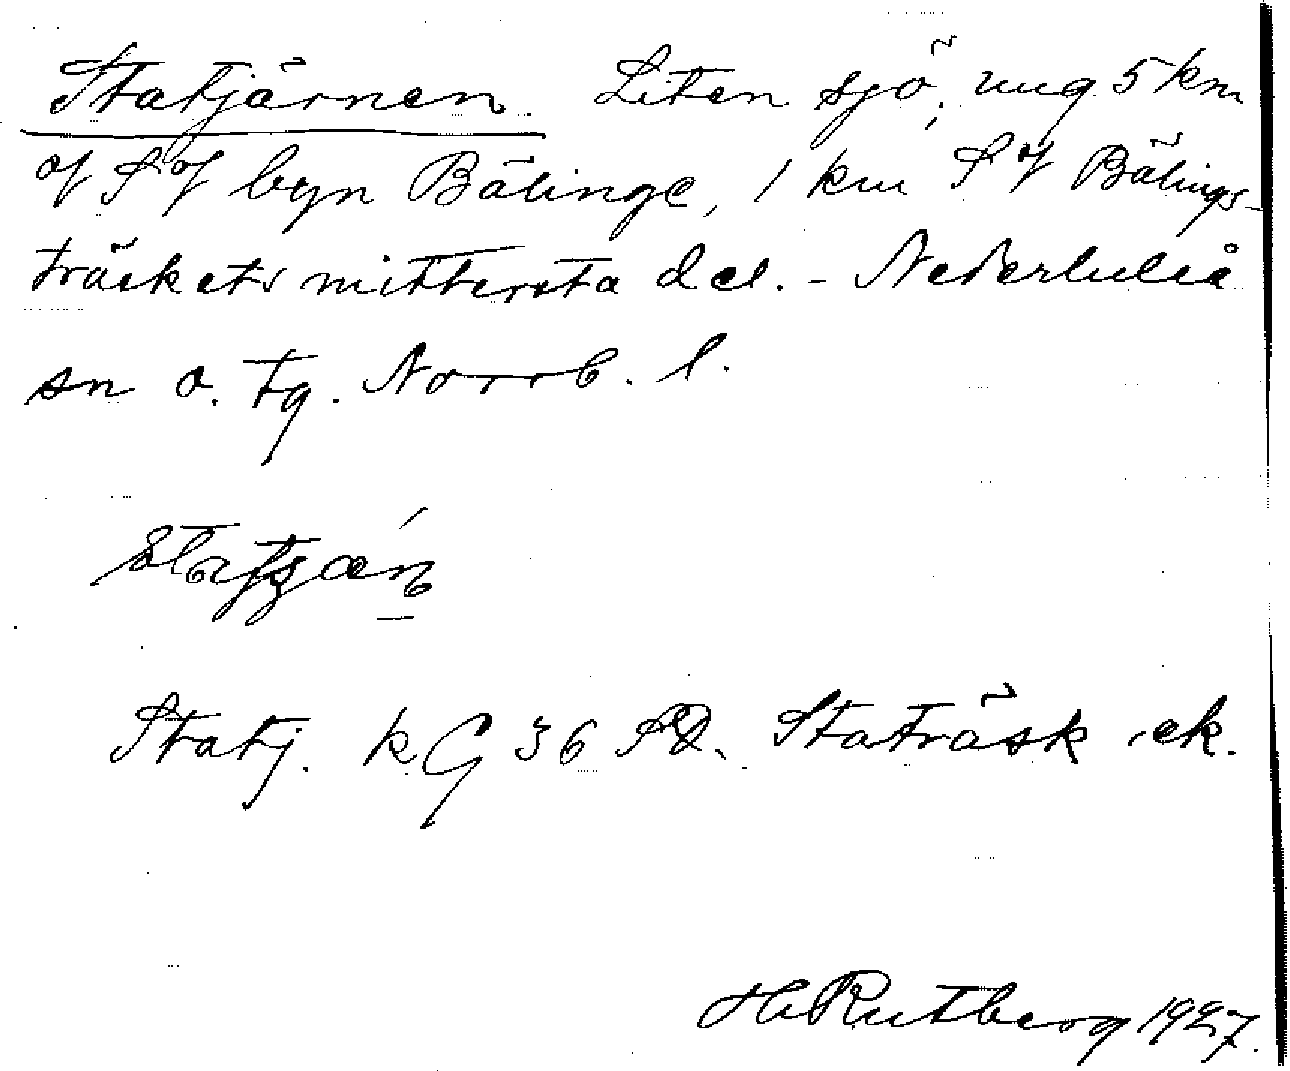 Statjärnen. Liten sjö, ung 5 km
af S af byn Bälinge, 1 km S af Bälings-
träskets mittersta del. - Nederluleå
sn o. tg. Norrb. l.
Statj. k. G 36 Staträsk ek.
H. Rutberg 1927.